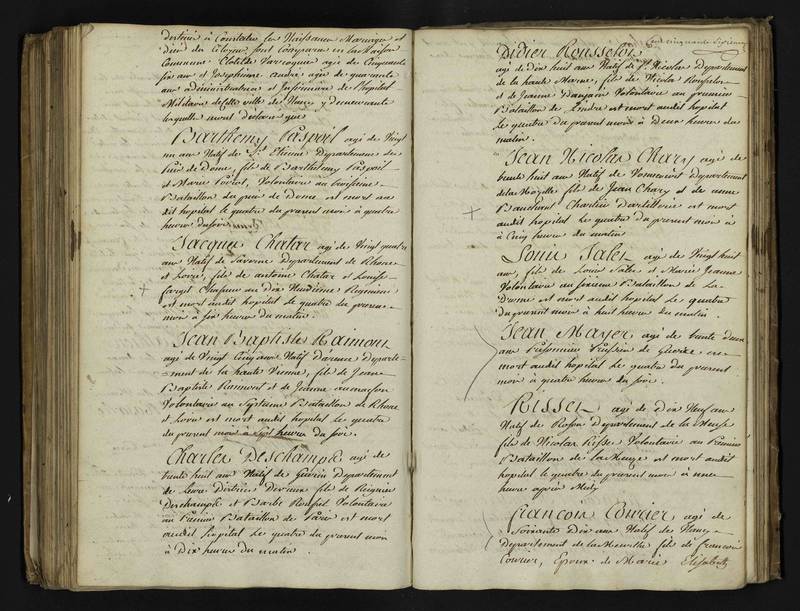 destiné à Constater les Naissance Mariages et
dècès des Citoyens, sont Comparu en la Maison
Commune Clotilde agé de Cinquante
six ans et Josephinne Andre agée de quarante
ans administratrice et Infirmiere de l'hopital
Militaire de cette ville de Nancy y demeurante
lesquelle nous declare que
Barthemy Paspoil agé de Vingt
un ans Natif de St. Etienne Departement du
Puis de Dome, fils de Barthelemy Paspoil
et Marie Poirot, Volontaire au troisieme
Bataillon du puis de Dome est mort au
dit hopital le quatre du present mois à quatre
heure du soir
Jacque Chatar agé de Vingt quatre
ans Natif de Departement de Rhone
et Loire, fils de antoine Chatar et Louise
Chasseur au Dix Neuvieme Regiment
est mort audit hopital le quatre du present
mois à six heure du matin
Jean Baptiste Raimont
agé de Vingt Cinq ans Natif Departe-
-ment de la haute Vienne, fils de Jean
Baptiste Raimont et de Jeanne
Volontaire au Septieme Bataillon de Rhone
et Loire est mort audit hopital le quatre
du present mois à Sept heure du soir.
Charles Deschamph agé de
trente huit ans Natif de Departement
de fils de
Deschamph et Barbe Volontaire
au Premier Bataillon de Paris est mort
audit hopital le quatre du present mois
à Dix heure du matin.
Cent cinquante
Didier Rousselot
agé de Dix huit ans Natif de St. Nicolas Departement
de la haute Marne, fils de Nicolas Rousselot
et de Jeanne Volontaire au premier
Bataillon de est mort audit hopital
le quatre du present mois à Deux heure du
matin.
Jean Nicolas Chary agé de
trente huit ans Natif de Departement
de la Mozelle fils de Jean Chary et de
Chartier d'artillerie est mort
audit hopital le quatre du present mois à
à Cinq heure du matin
Louis Sales agé de Vingt huit
ans, fils de Louis Sales et Marie Jeanne
Volontaire au sixieme Bataillon de La
Drome est mort audit hopital le quatre
du present mois à huit heure du matin.
Jean Mayer agé de trente deux
ans Prisonnier Prussien de Guerre est
mort audit hopital le quatre du present
mois a quatre heure du soir.
Risset agé de Dix Neuf ans
Natif de Departement de la Meuse
fils de Nicolas Risse Volontaire au Premier
Bataillon de la Meuze est mort audit
hopital le quatre du present mois à une
heure après Midy
francois Couvier agé de
Soixante Dix ans Natif de Nancy
Departement de la Meurthe fils de francois
Couvier, Epoux de Marie Elisabeth